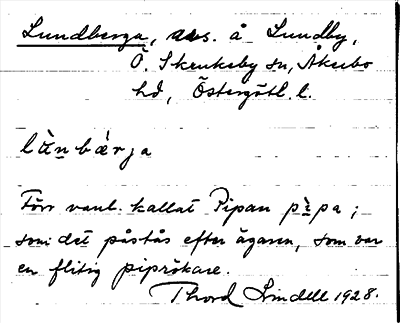 Lundberga, avs. å Lundby,
Ö. Skrukeby sn, Åkerbo
hd, Östergötl. l.
lùnbærja
Förr vanl. kallat Pipan pìpa;
som det påstås efter ägaren, som var
en flitig piprökare.
Thord Lindell 1928.